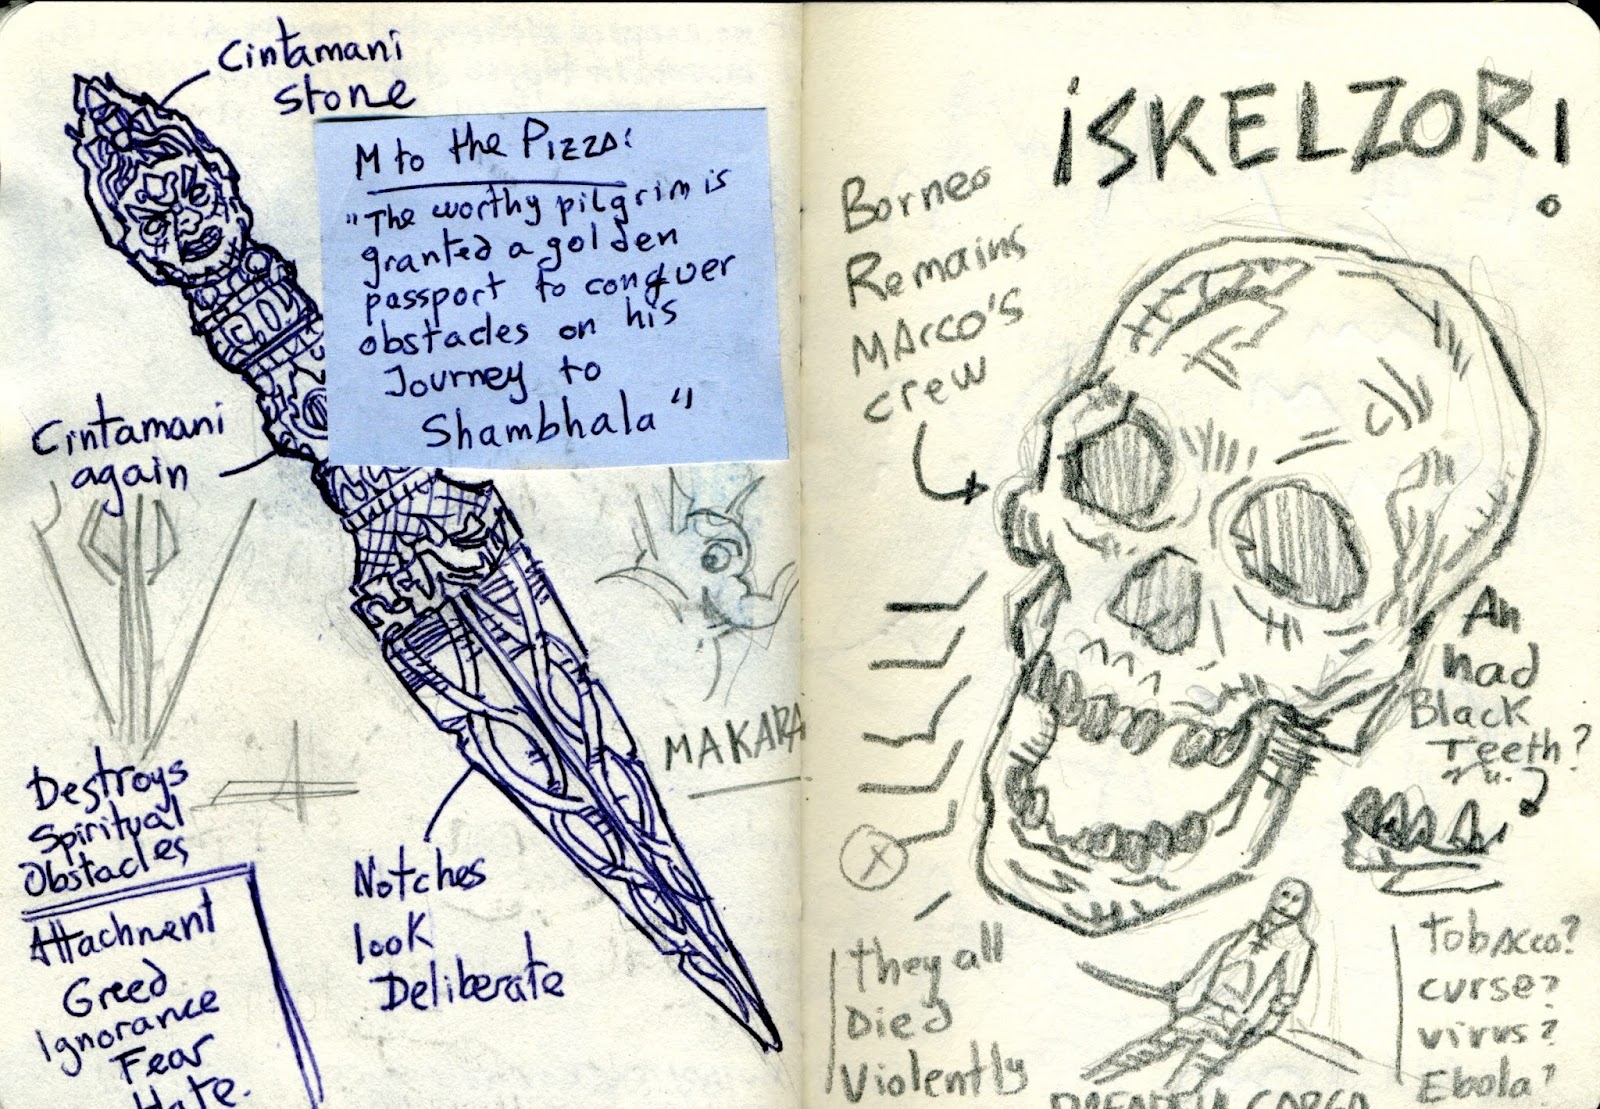 Cintamani
stone
M to the Pizza:
"The worthy pilgrim is
granted a golden
passport to conquer
obstacles on his
Journey to
Shambhala"
Cintamani
again
MAKARA
Destroys
Spiritual
Obstacles
Attachment
Greed
Ignorance
Fear
Hate.
Notches
look
Deliberate
¡SKELZOR!
Borneo
Remains
MArco's
crew
All
had
Black
Teeth?
X
they all
Died
Violently
Tobacco?
curse?
virus?
Ebola?
CARGA